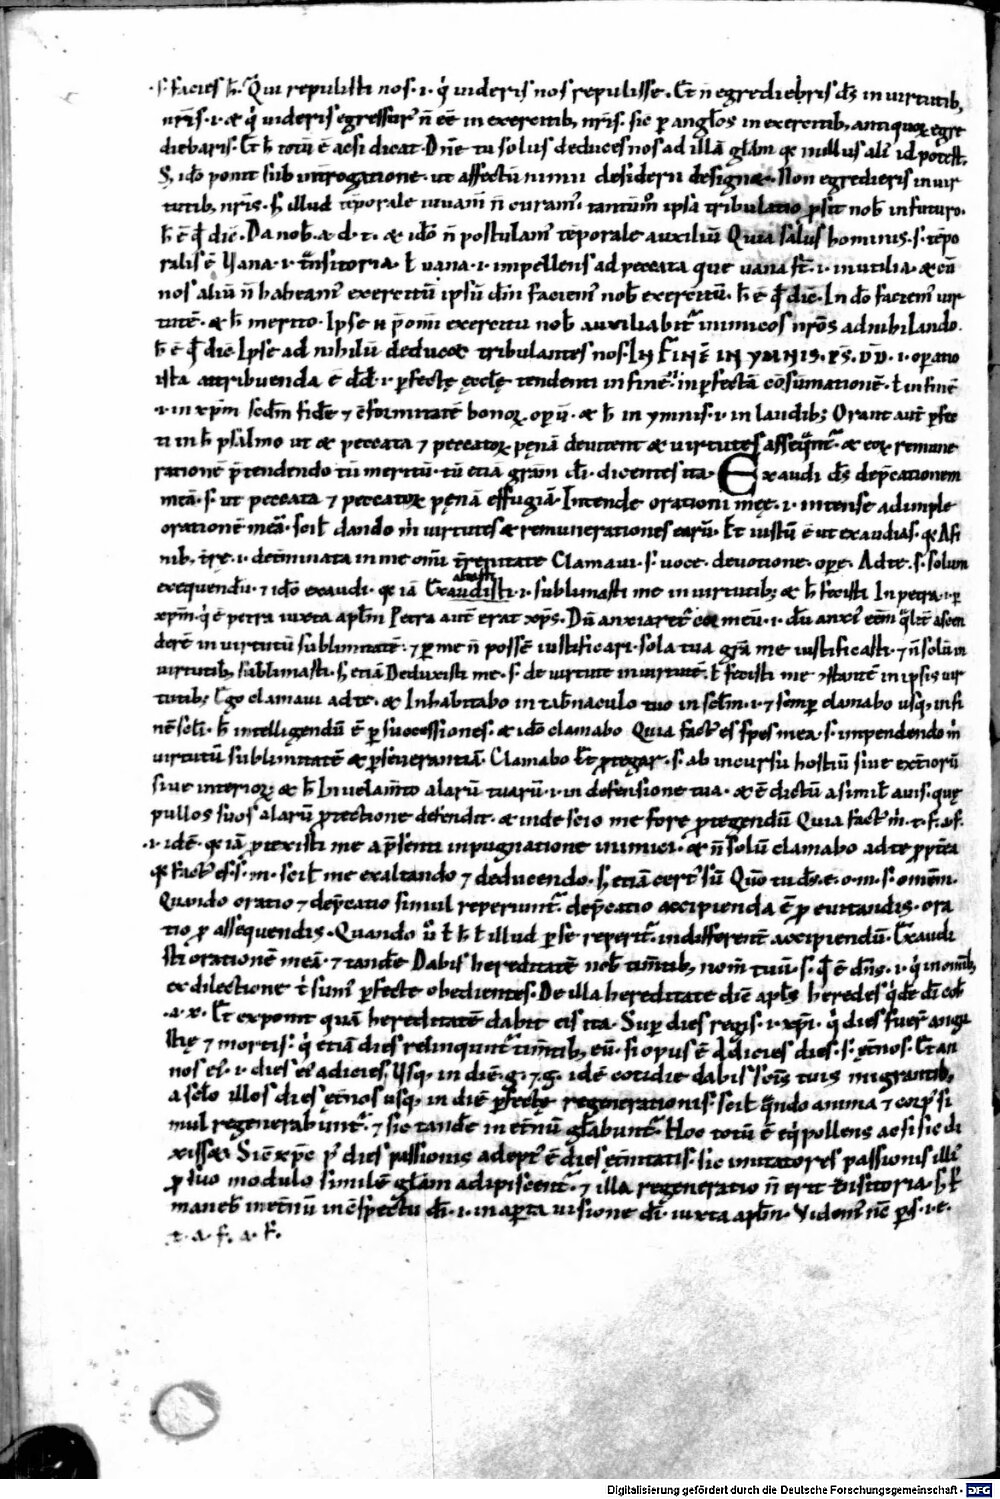 .s. facies h̄. Qͥui repulisti nos .i. qͥ uideris nos repulisse. Et n̄ egredieb̄ris ds̄ in uirtutib;
nr̄is .i. & qͥ uideris egressur᾽ n̄ ēē in exercitib; nr̄is. sic p angl̄os in exercitib; antiquoꝝ egre
diebaris. Et h̄ totū ē acsi dicat. Dn̄e tu solus deduces nos ad illā gl̄am qꝫ nullus ali᾽ id potest.
S; idō ponit sub int̄rogatione. ut affectū nimii desiderii designet. Non egredieris in uir
tutib; nr̄is. s; illud tēporale iuuam̄ n̄ curam᾽. tantūm̊ ipsa tribulatio ꝓsit nob̄ in futuro.
h̄ ē qd̄ dic̄. Da nob̄. a. d. t. & idō n̄ postulam᾽ tēporale auxiliū Quia salus hominis .s. tēpo
ralis ē Uana .i. t̄nsitoria. ł uana .i. impellens ad peccata que uana st̄ .i. inutilia. & cū
nos aliū n̄ habeam᾽ exercitū ipsū dm̄ faciem᾽ nob̄ exercitū. h̄ ē qd̄ dic̄. In dō faciem᾽ uir
tutē. & h̄ merito. Ipse n̄ p̄ omī exercitu nob̄ auxiliabit᾽ inimicos nr̄os adnihilando.
h̄ ē qd̄ dic̄ Ipse ad nihilū deducet tribulantes nos. IN FINĒ IN YMNIS. PS̄. DD̄. .i. oꝑatio
ista attribuenda ē dd̄ .i. ꝑfectę ęccl̄ę tendenti in finē .i. in ꝑfectā cōsūmationē. ł in finē
.i. in xpm̄ scdm̄ fidē & c̄formitatē bonoꝝ oꝑū. & h̄ in ymnis .i. in laudib; Orant aut̄ ꝑfec
ti in h̄ psalmo ut & peccata & peccatoꝝ pęnā deuitent & uirtutes asseqͣnt᾽. & eoꝝ remune
rationē p̄tendendo tū meritū. tū etiā grām dī. dicentes ita. Exaudi ds̄ dep̄cationem
meā .s. ut peccata & peccatoꝝ pęnā effugiā. Intende orationi meę .i. intense adimple
orationē meā. scil̄ dando m̄ uirtutes & remunerationes earū. Et iustū ē ut exaudias. qꝫ A fi
nib; tr̄ę .i. det̄minata in me omī t̄renitate Clamaui .s. uoce. deuotione. oꝑe. Ad te .s. solum
exequendū. & idō exaudi. qꝫ iā Exaudisti .i. sublimasti me in uirtutib;. & h̄ fecisti In petra .i. ꝑ
xpm̄. qͥ ē petra iuxta apl̄m Petra aut̄ erat xps̄. Dū anxiaret᾽ cor meū .i. dū anxi᾽ eēm qͣlit᾽ ascen
derē in uirtutū sublimitatē. & ꝑ me n̄ possē iustificari. sola tua grā me iustificasti. & n̄ solū in
uirtutib; sublimasti. s; etiā Deduxisti me .s. de uirtute in uirtutē. ł fecisti me ꝯstantē in ipsis uir
tutib;. Ego clamaui ad te. & Inhabitabo in tab̄naculo tuo in scl̄m .i. & semꝑ clamabo usq; in fi
nē scl̄i. h̄ intelligendū ē ꝑ successiones. & idō clamabo Quia fact᾽ es spes mea .s. impendendo m̄
uirtutū sublimitatē & ꝑseuerantiā. Clamabo Et ꝓtegar .s. ab incursu hostiū siue exterioꝝ
siue interioꝝ. & h̄ In uelam̄to alarū tuarū .i. in defensione tua. & ē dictū a simil̄ auis. quę
pullos suos alarū ꝓtectione defendit. & inde scio me fore ꝓtegendū Quia fact᾽ m̄. t. f. a. f.
.i. idē. qꝫ iā ꝓtexisti me a p̄senti inpugnatione inimici. & n̄ solū clamabo ad te ꝓpt̄ea
qꝫ fact᾽ es .s. m. scil̄ me exaltando & deducendo. s; etiā cert᾽ sū Qm̄ tu ds̄. e. o. m. s. omēm.
Quando oratio & dep̄catio simul reperiunt᾽. dep̄catio accipienda ē ꝓ euitandis. ora
tio ꝓ assequendis. Quando ů ł h̄ ł illud ꝑ se reperit᾽. indifferent᾽ accipiendū. Exaudi
sti orationē meā. & tandē Dabis hereditatē nob̄ tim̄tib; nom̄ tuū .s. qd̄ ē dn̄s .i. qͥ in omīb;
ex dilectione t̄ sum᾽ ꝑfecte obedientes. De illa hereditate dic̄ apl̄s heredes qͥdē dī coh̄
.a. x. Et exponit quā hereditatē dabit eis ita. Suꝑ dies regis .i. xpī. qͥ dies fuer̄ angu
stię & mortis. qͥ etiā dies relinqunt᾽ tim̄tib; eū. si opus ē. Adicies dies .s. ęt̄nos. Et an
nos ei᾽ .i. dies ei᾽ adicies. Usq; in diē. g. & g. idē cotidie dabis scīs tuis migrantib;
a scl̄o illos dies ęt̄nos usq; in diē ꝑfectę regenerationis. scil̄ qͣndo anima & corp᾽ si
mul regenerabunt᾽. & sic tandē in et̄nū gl̄abunt᾽. Hoc totū ē eqͥpollens ac si sic di
xisset Sic̄ xpc̄ p᾽ dies passionis adept᾽ ē dies et̄nitatis. sic imitatores passionis illi᾽
ꝓ suo modulo similē gl̄am adipiscent᾽. & illa regeneratio n̄ erit t̄nsitoria. s; 
maneb̄ in et̄nū in c̄spectu dī .i. in aꝑta uisione dī. iuxta apl̄m. Videm᾽ nc̄ ꝑ s. i. e.
t. a. f. a. f.
Digitalisierung gefördert durch die Deutsche Forschungsgemeinschaft - DFG